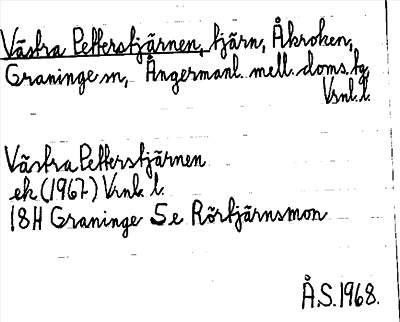 Västra Petterstjärnen, tjärn, Åkroken,
Graninge sn, Ångermanl. mell. doms. tg,
Vsnl. l.
Västra Petterstjärnen
ek (1967) Vsnl. l.
18H Graninge 5e Rörtjärnsmon
Å.S. 1968.